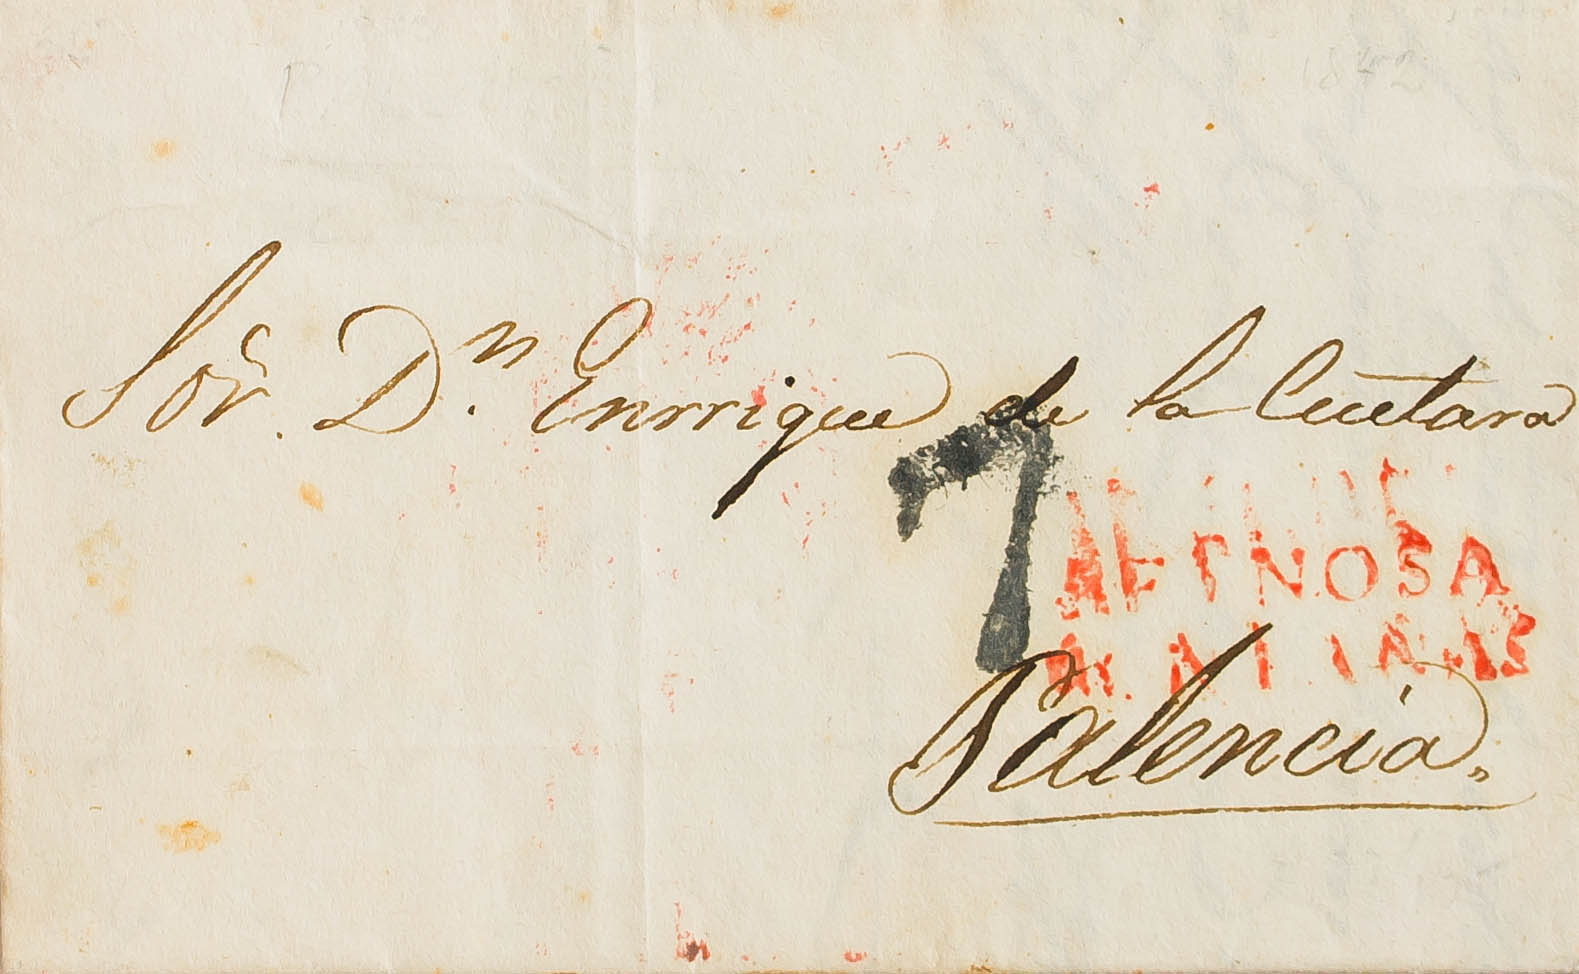 1842
Sor. Dn. Enrrique de la Cuetara
7
REINOSA
Palencia.